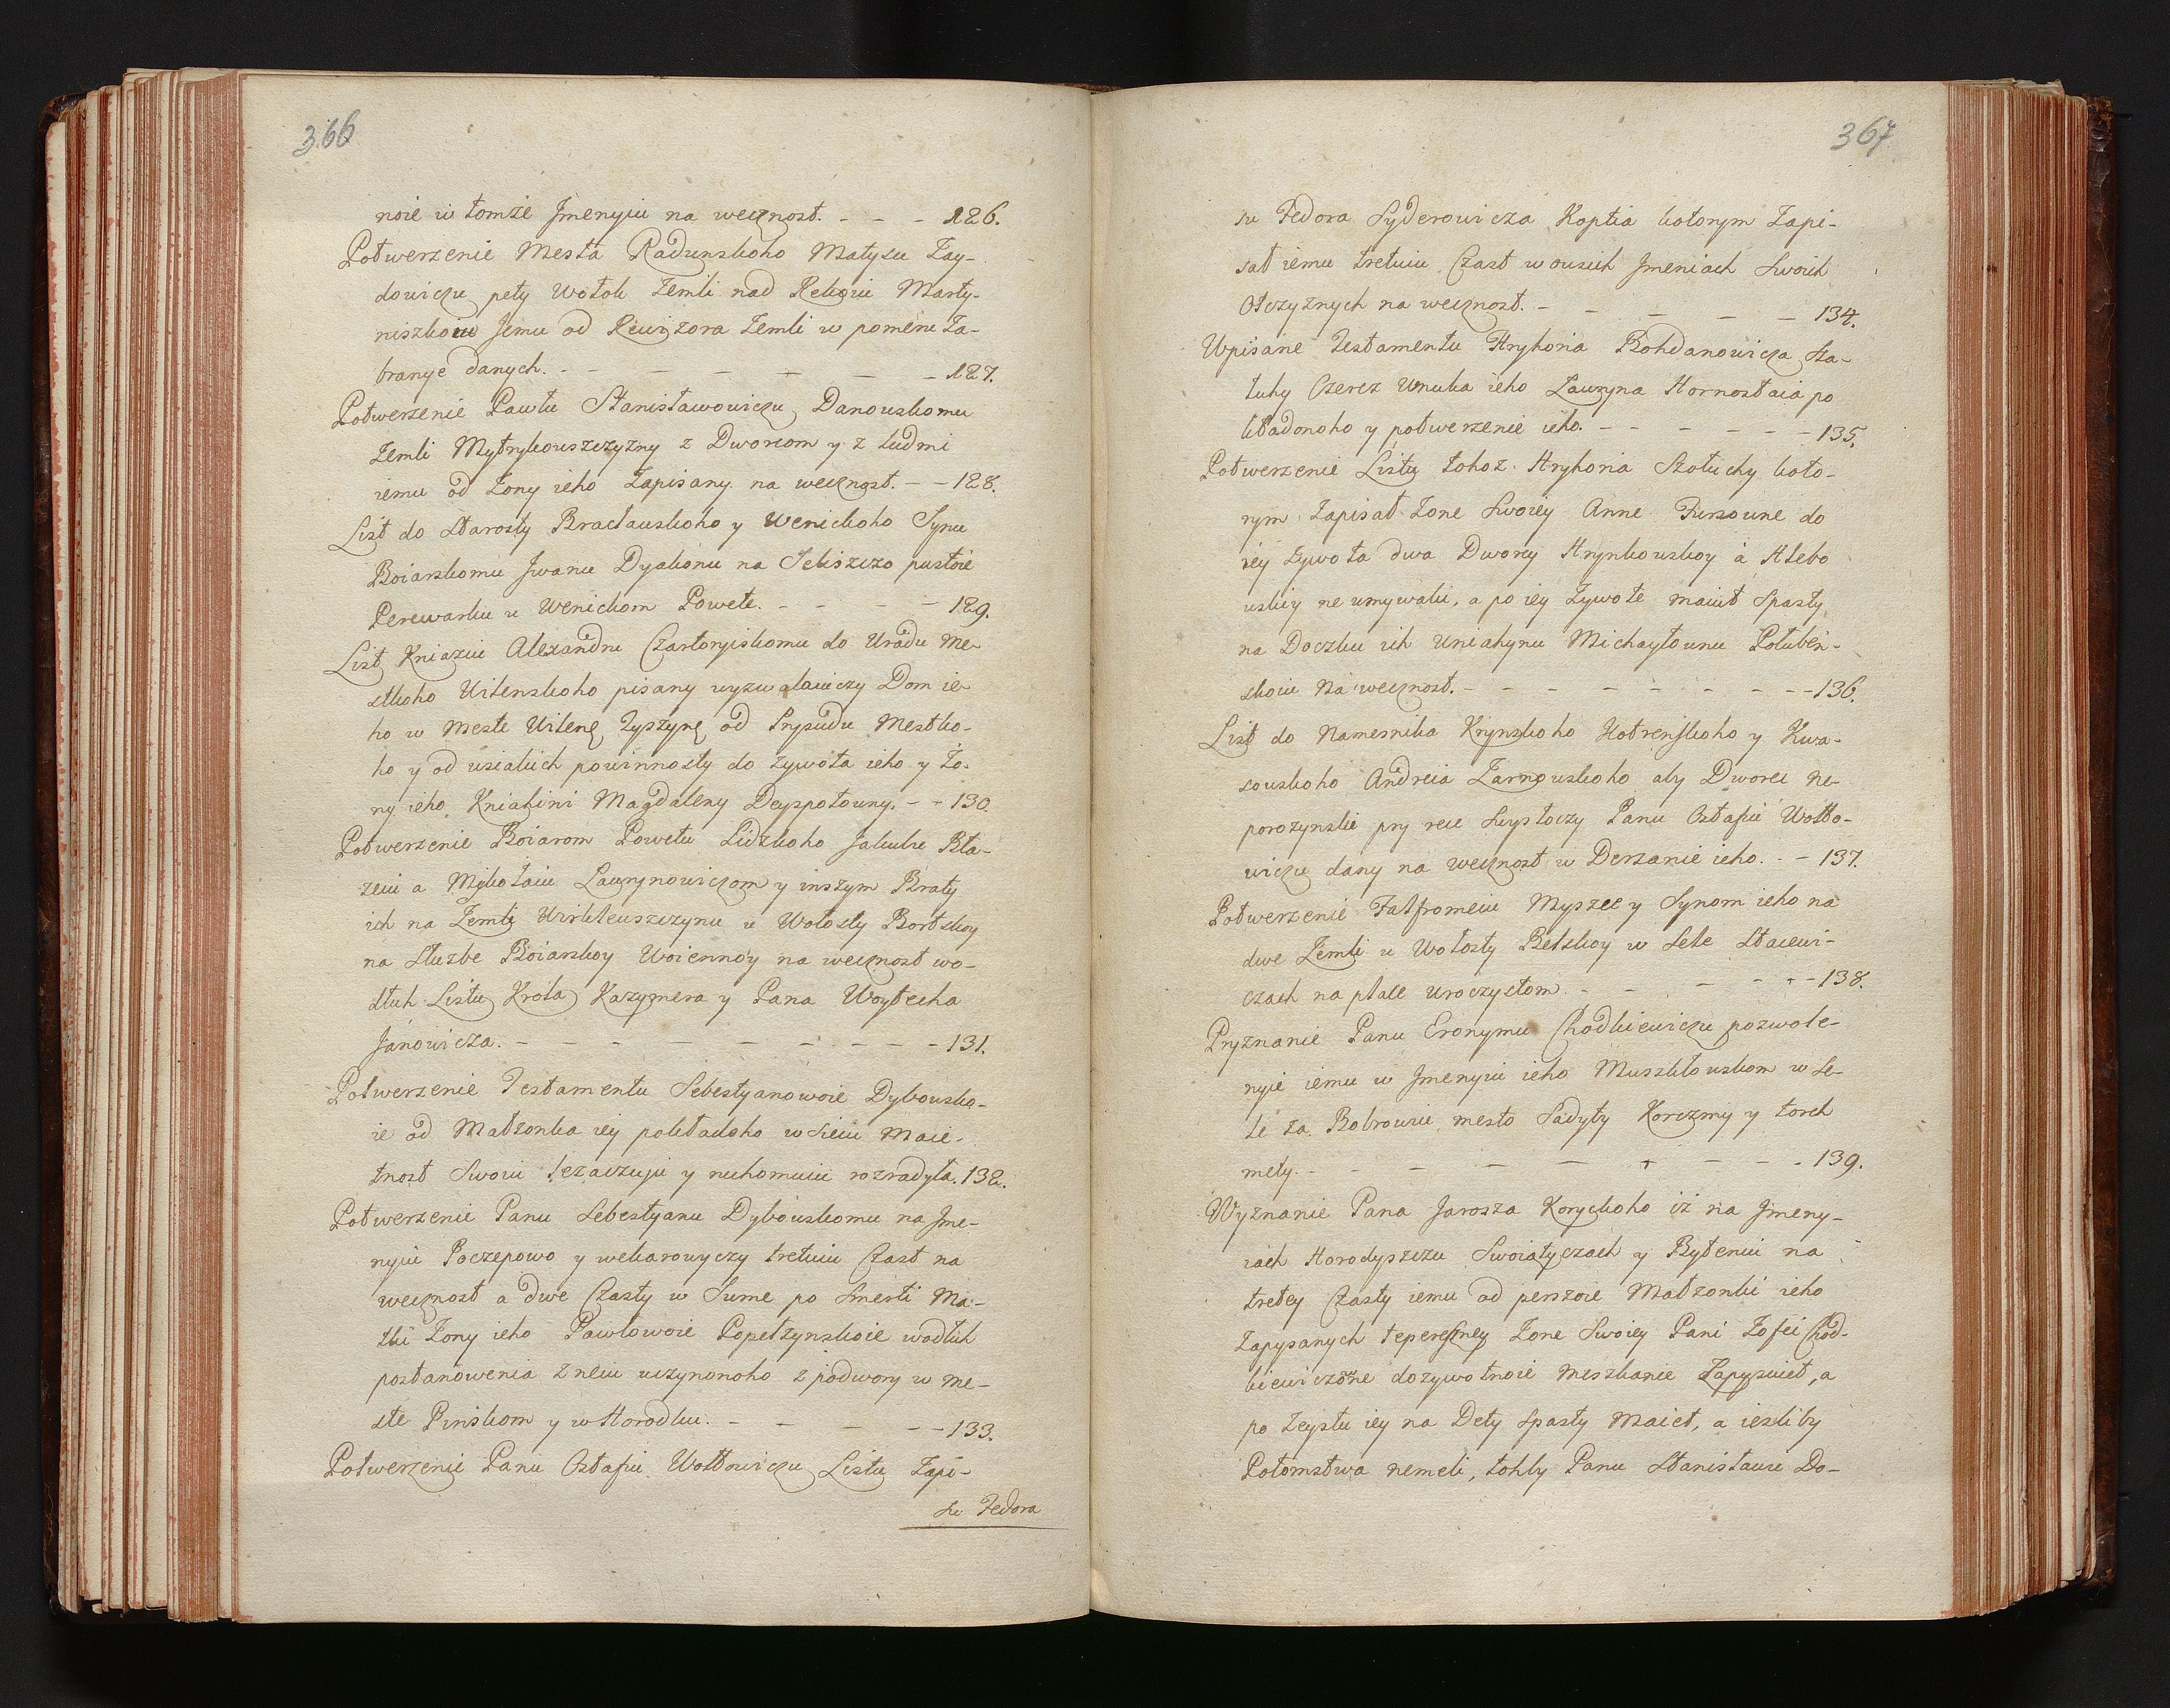 366
noie w tomże Jmenyiu na wecznost. - - - 126.
Potwerzenie Mesta Radunskoho Matysu Zay-
dowiczu pety Wołok Zemli nad Rekoiu Marty-
niszkoiu Jemu od Rewizora Zemli w pomeru Za-
branye danych. - - - - - - - 127.
Potwerzenie Pawłu Stanisławowiczu Danouskomu
Zemli Mytrykouszczyzny z Dworcom y z ludmi
iemu od Żony ieho Zapisany na wecznost. - - 128.
List do Starosty Bracłauskoho y Wenickoho Synu
Boiarskomu Jwanu Dyakonu na Seliszczo pustoie
Perewarku u Wenickom Powete. - - - - 129.
List Kniaziu Alexandru Czartoryiskomu do Uradu Me-
stkoho Wilenskoho pisany wyzwalaiuczy Dom ie-
ho w Meste Wilene Zyszyne od Prysudu Mestko-
ho y od usiakich powinnosty do Zywota ieho y Żo-
ny ieho Kniahini Magdaleny Deyspotouny. - - 130.
Potwerzenie Boiarom Powetu Lidzkoho Jakubu Bła-
zeiu a Mykołaiu Laurynowiczom y inszym Braty
ich na Zemli Wirkleuszczynu u Wołosty Bortskoy
na Służbe Boiarskoy Woiennoy na wecznost wo-
dłuh Listu Króla Kazymera y Pana Woytecha
Janowicza. - - - - - - - - - 131.
Potwerzenie Testamentu Sebestyanowoie Dybousko-
ie od Małzonka iey pokładoho w sieiu Maie-
tnost Swoiu lezaczuju y ruchomuiu rozradyła. 132.
Potwerzenie Panu Sebestyanu Dybouskomu na Jme-
nyiu Poczepowo y wekarowyczy tretuiu Czast na
wecznost a dwe Czasty w Sume po Smerti Ma-
tki Żony ieho Pawłowoie Popełzynskoie wodłuh
postanowenia z neiu uczynonoho z podwory w me-
ste Pinskom y w Horodku. - - - - - 133.
Potwerzenie Panu Ostafiu Wołłowiczu Listu Zapi-
su Fedora
367
su Fedora Syderowicza Koptia kotorym Zapi-
sał iemu tretuiu Czast w ousich Jmeniach Swoich
Otczyznych na wecznost. - - - - - - 134.
Wpisane Testamentu Hryhoria Bohdanowicza Sta-
luhy Czerez Unuka ieho Lauryna Hornostaia po
kładonoho y potwerzenie ieho. - - - - - - 135.
Potwerzenie Listu tohoz Hryhoria Szołuchy koto-
rym Zapisał Żone Swoiey Anne Fursoune do
iey zywota dwa Dworcy Hrynkouskoy a Hlebo
uskiy ne umywalii, a po iey Zywote maiut Spasty
na Doczku ich Uniahynu Michayłounu Połubin-
skoiu Na wecznost. - - - - - - - - 136.
List do Namesnika Krynskoho Hotrenskoho y Kwa-
souskoho Andreia Zarnouskoho aby Dworec ne-
porozynskie pry rece Swysłoczy Panu Ostafiu Wołło-
wiczu dany na wecznost w Derzanie ieho. - - 137.
Potwerzenie Fałfromeiu Myszce y Synom ieho na
dwe Zemli u Wołosty Belskoy w Sele Staiewi-
czach na place uroczystom. - - - - - - 138.
Pryznanie Panu Eronymu Chodkiewiczu pozwole-
nyie iemu w Jmenyiu ieho Muszkłouskom w Se-
le za Bobrowie mesto Sadyty Korczmy y torch
mety. - - - - - - - - 139.
Wyznanie Pana Jarosza Koryckoho iż na Jmeny-
iach Horodyszczu Swoiatyczach y Byteniu na
tretey Czasty iemu od perszoie Małzonki ieho
Zapysanych teperesney Żone Swoiey Pani Zofei Chod-
kiewiczone dozywotnoie Meszkanie Zapysuiet, a
po Zeystu iey na Dety Spasty Maiet, a iesliby
Potomstwa nemeli, tohly Panu Stanisławu Do-